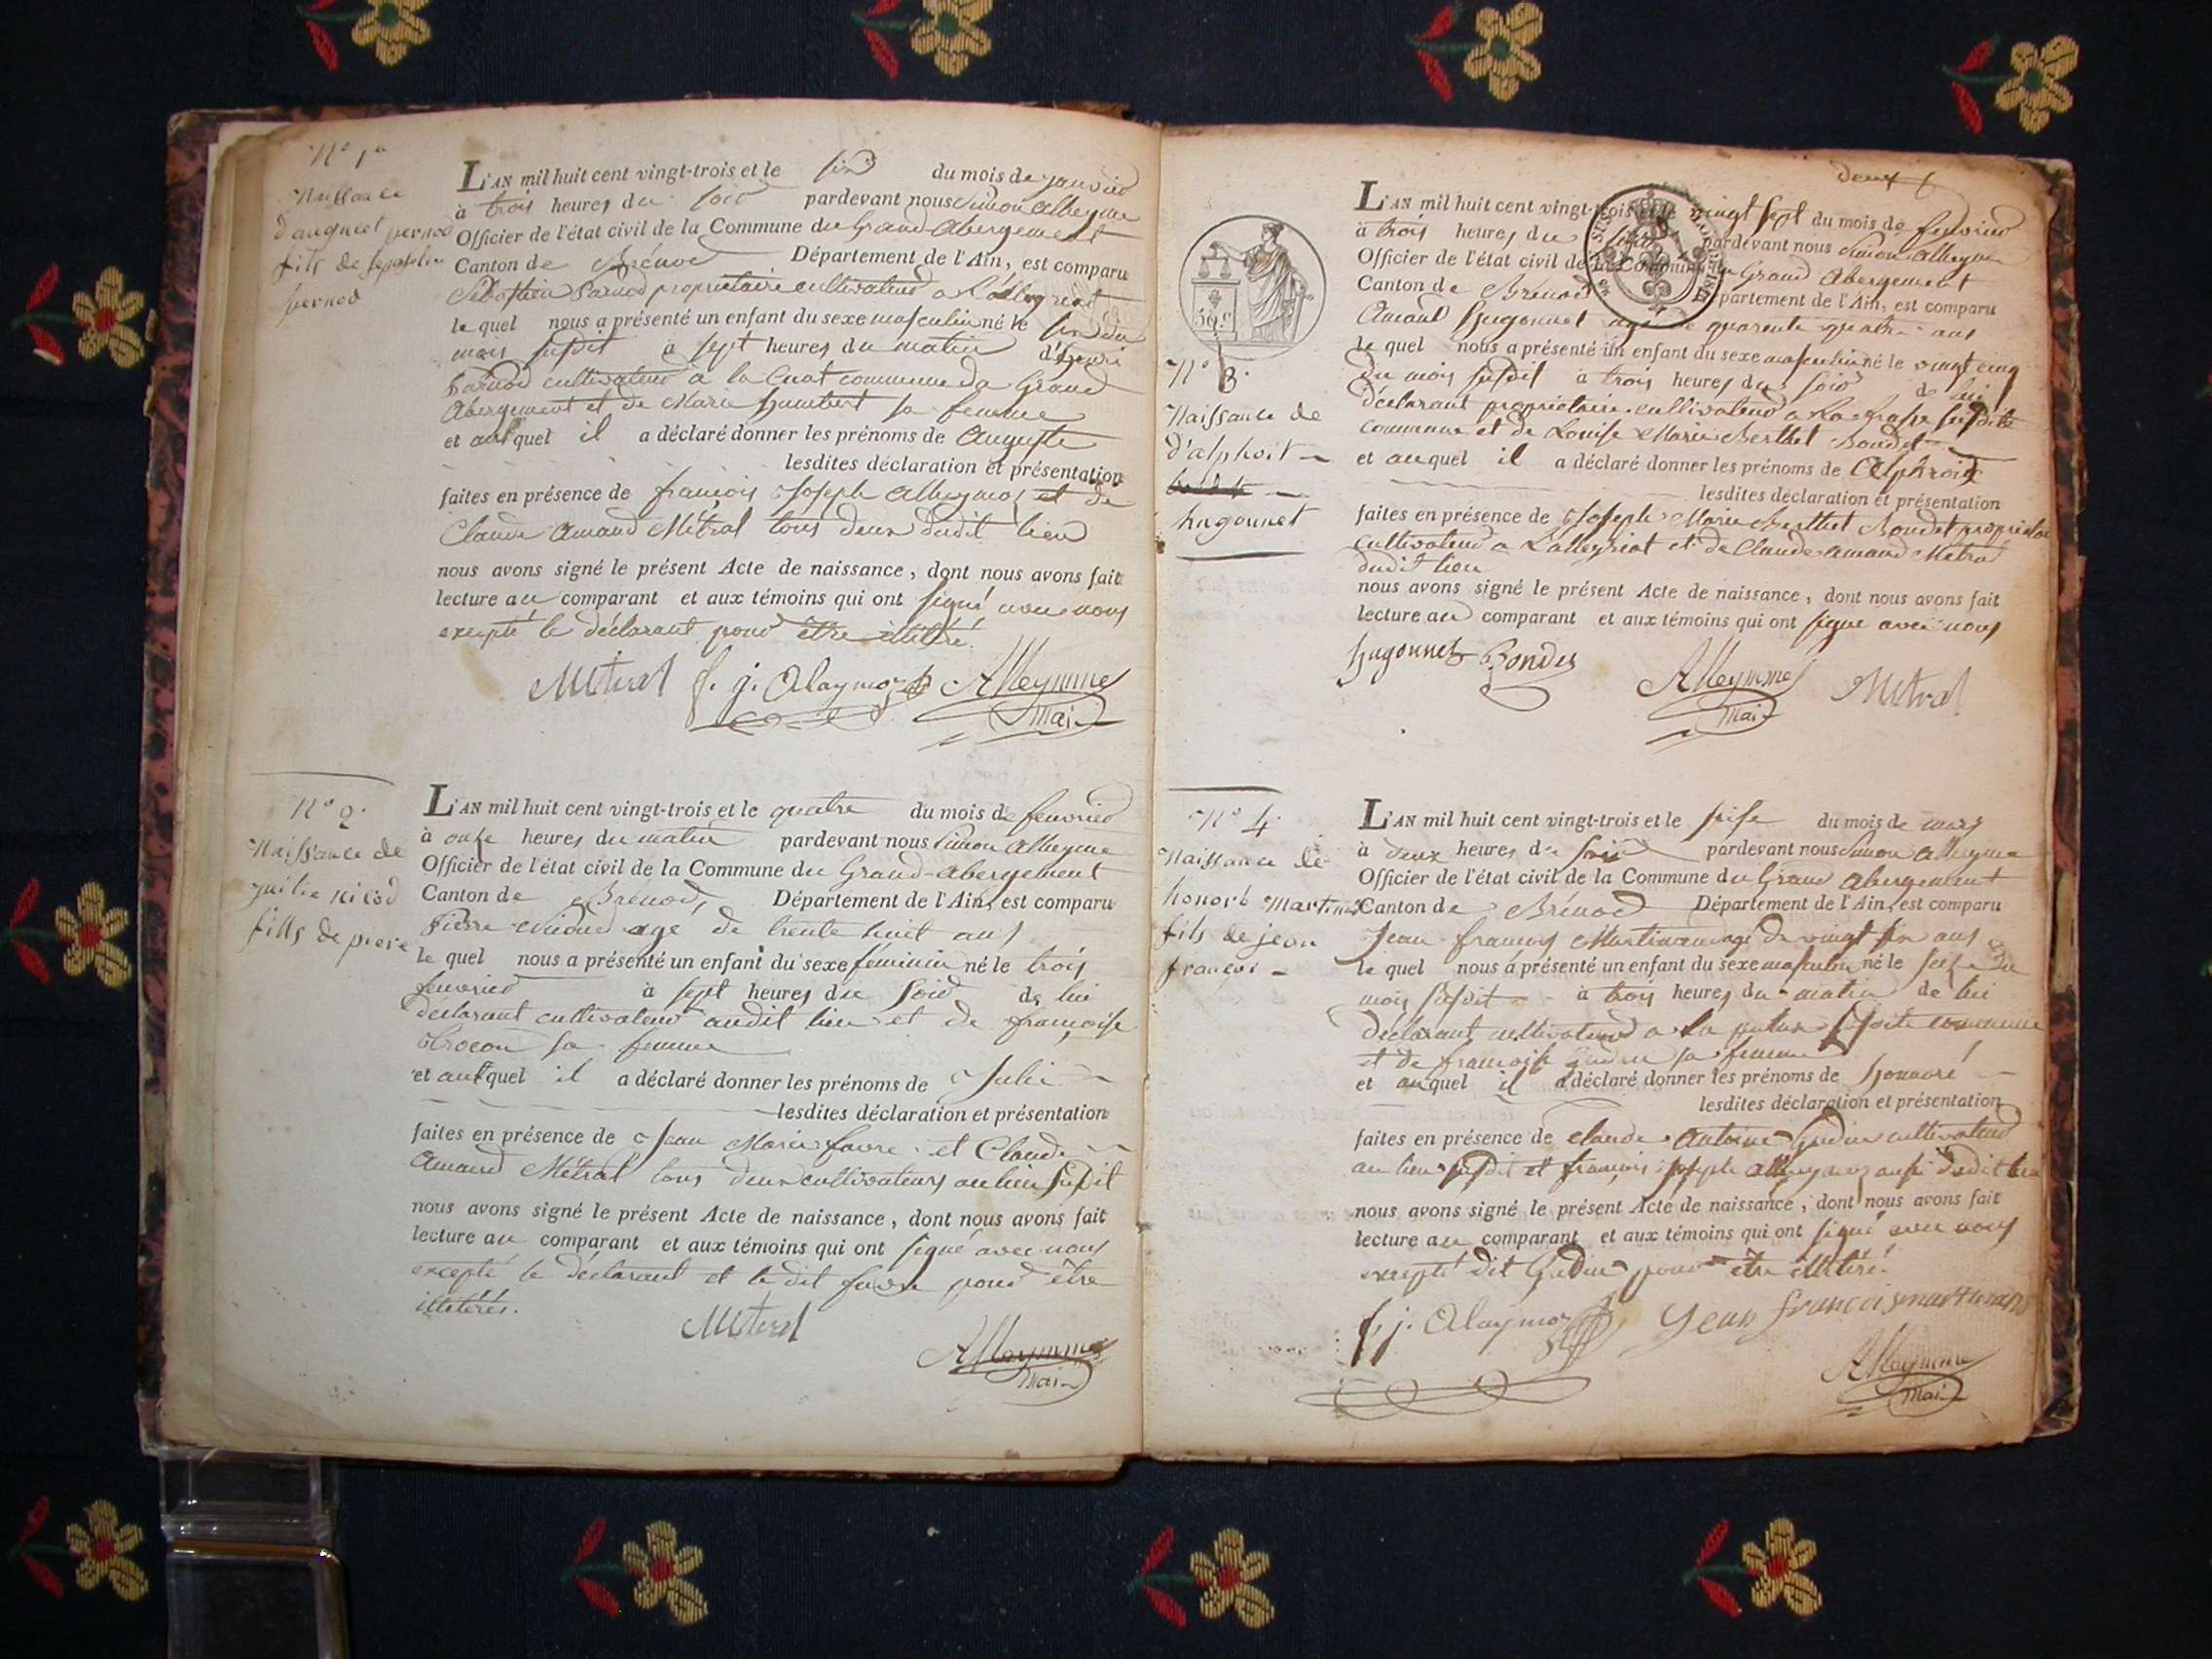 N° 1er
Naissance
d'auguet pernod
fils de
pernod
L'AN mil huit cent vingt-trois et le six du mois de janvier
à trois heures du soir pardevant nous Simon Alleyme
Officier de l'état civil de la Commune du Grand Abergement
Canton de Brénod Département de l'Ain, est comparu
Sébastien Parnod propriétaire cultivateur a L'alleyriat
le quel nous a présenté un enfant du sexe masculin né le six du
mois susdit à sept heures du matin
Parnod cultivateur a la commune du Grand
Abergement et de Marie humbert sa femme
et auquel il a déclaré donner les prénoms de Auguste
lesdites déclaration et présentation
faites en présence de françois Joseph et de
Claude Amand Métral tous deux dudit lieu
nous avons signé le présent Acte de naissance, dont nous avons fait
lecture au comparant et aux témoins qui ont signé avec nous
excepté le déclarant pour être illitéré.
Métral f. j. Alaymoz Alleymme
Mai
N° 2.
Naissance de
nicod
fills de piere
L'AN mil huit cent vingt-trois et le quatre du mois de feuvrier
à onze heures du matin pardevant nous Simon Alleyme
Officier de l'état civil de la Commune du Grand-abergement
Canton de Brénod, Département de l'Ain, est comparu
Pierre age de trente huit ans
le quel nous a présenté un enfant du sexe féminin né le trois
feuvrier à sept heures du soir de lui
déclarant cultivateur audit lieu et de françoise
sa femme
et auquel il a déclaré donner les prénoms de Julie
lesdites déclaration et présentation
faites en présence de Jean Marie favre et Claude
Amand Métral tous deux cultivateurs au lieu susdit
nous avons signé le présent Acte de naissance, dont nous avons fait
lecture au comparant et aux témoins qui ont signé avec nous
excepté le déclarant et le dit favre pour être
illitérés.
Métral
Alleymme
Mai
deux
50 c
N° 3.
Naissance de
d'alphoit
hugonnet
L'AN mil huit cent vingt-trois et le vingt sept du mois de feuvrier
à trois heures du soir pardevant nous Simon Alleyme
Officier de l'état civil de la Commune du Grand Abergement
Canton de Brénod Département de l'Ain, est comparu
Amand hugonnet agé de quarente quatre ans
le quel nous a présenté un enfant du sexe masculin né le vingt cinq
du mois susdit à trois heures du soir de lui
déclarant propriétaire cultivateur a susdite
commune et de Louise Marie Berthet Bondet
et auquel il a déclaré donner les prénoms de Alphroit
lesdites déclaration et présentation
faites en présence de Joseph Marie Berthet Bondet
cultivateur a L'alleyriat et de Claude Amand Métral
dudit lieu
nous avons signé le présent Acte de naissance, dont nous avons fait
lecture au comparant et aux témoins qui ont signé avec nous
hugonnet Bondet Alleymme Métral
Mai
N° 4.
Naissance de
honoré
fils de jean
françoi
L'AN mil huit cent vingt-trois et le seise du mois de mars
à deux heures du soir pardevant nous Simon Alleyme
Officier de l'état civil de la Commune du Grand Abergement
Canton de Brénod Département de l'Ain, est comparu
Jean françois agé de vingt six ans
le quel nous a présenté un enfant du sexe masculin né le seize du
mois susdit à trois heures du matin de lui
déclarant cultivateur a la susdite commune
et de françoise sa femme
et auquel il a déclaré donner les prénoms de honnoré
lesdites déclaration et présentation
faites en présence de Claude Antoine cultivateur
au lieu susdit et françois joseph aussi dudit lieu
nous avons signé le présent Acte de naissance, dont nous avons fait
lecture au comparant et aux témoins qui ont signé avec nous
excepté dit pour être illitéré.
f. j. Alaymoz jean françois
Alleymme
Mai